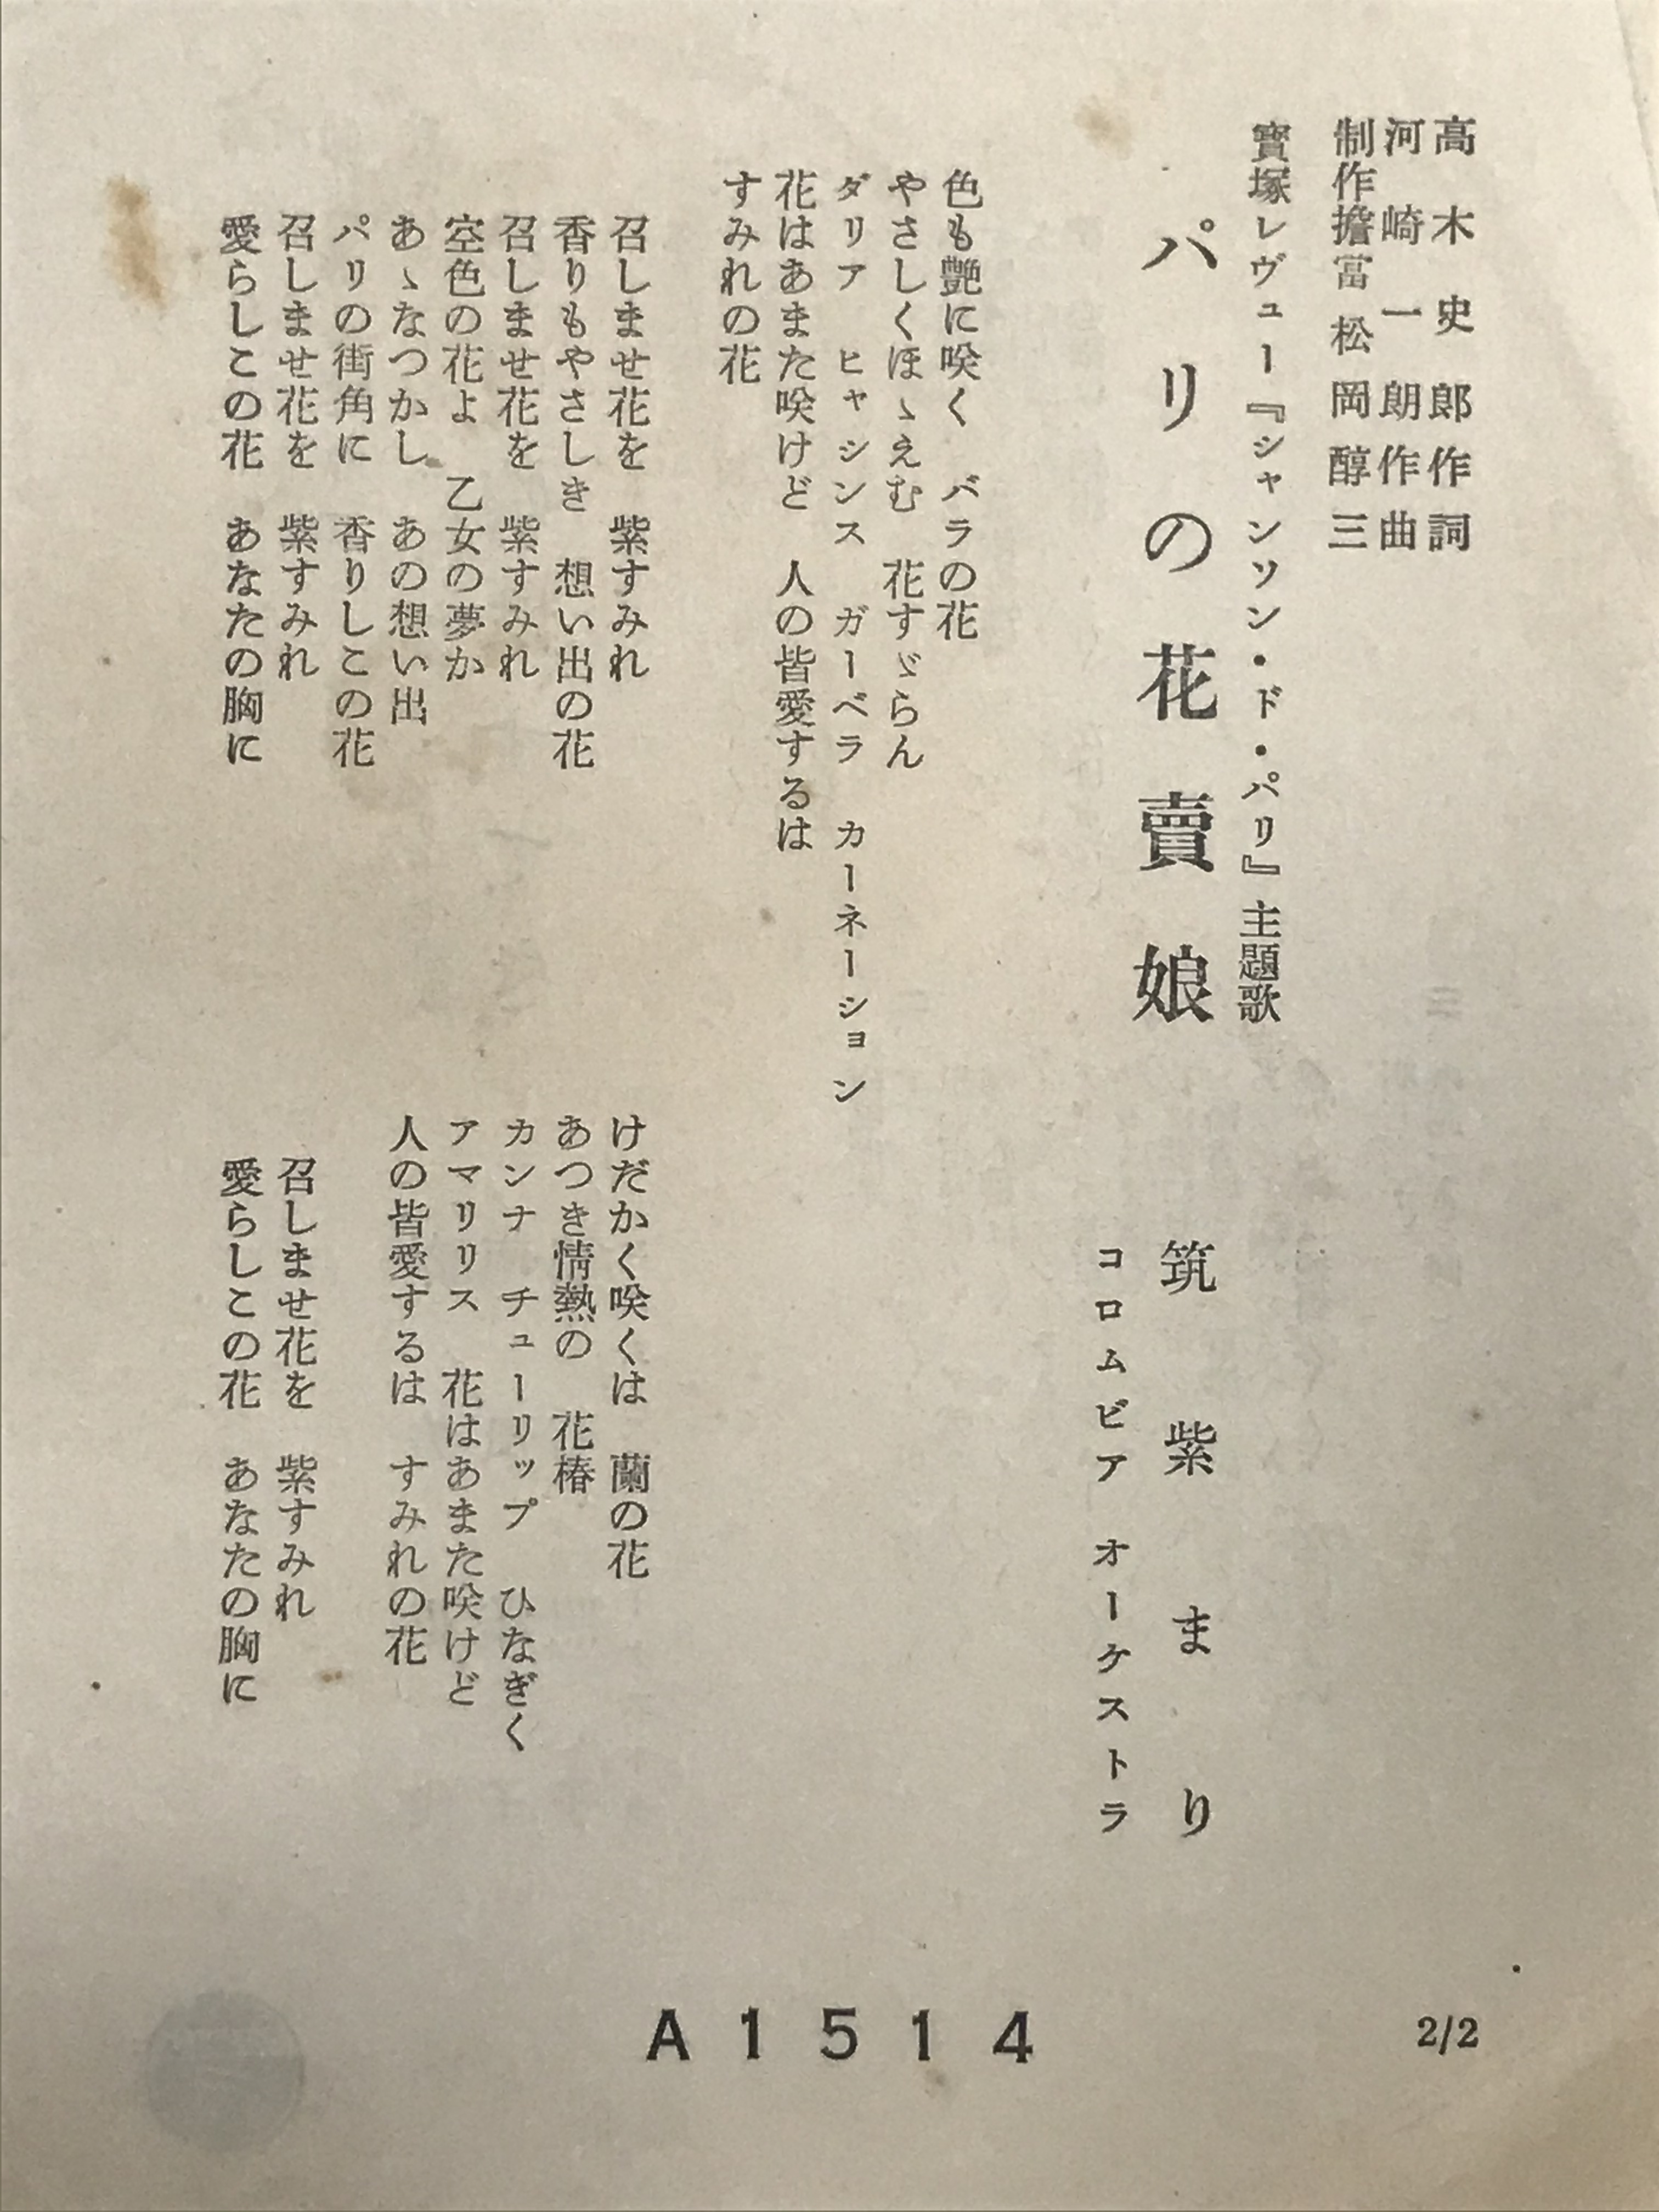 高木史郎作詞
河崎一朗作曲
制作擔當 松岡醇三
寶塚レヴュー『シャンソン・ド・パリ』主題歌
パリの花賣娘
筑紫まり
コロムビア オーケストラ
色も艶に咲く バラの花
やさしくほゝえむ 花すゞらん
ダリア ヒャシンス ガーベラ カーネーション
花はあまた咲けど 人の皆愛するは
すみれの花
召しませ花を 紫すみれ
香りもやさしき 想い出の花
召しませ花を 紫すみれ
空色の花よ 乙女の夢か
あゝなつかし あの想い出
パリの街角に 香りしこの花
召しませ花を 紫すみれ
愛らしこの花 あなたの胸に
けだかく咲くは 蘭の花
あつき情熱の 花椿
カンナ チューリップ ひなぎく
アマリリス 花はあまた咲けど
人の皆愛するは すみれの花
召しませ花を 紫すみれ
愛らしこの花 あなたの胸に
A1514
2/2